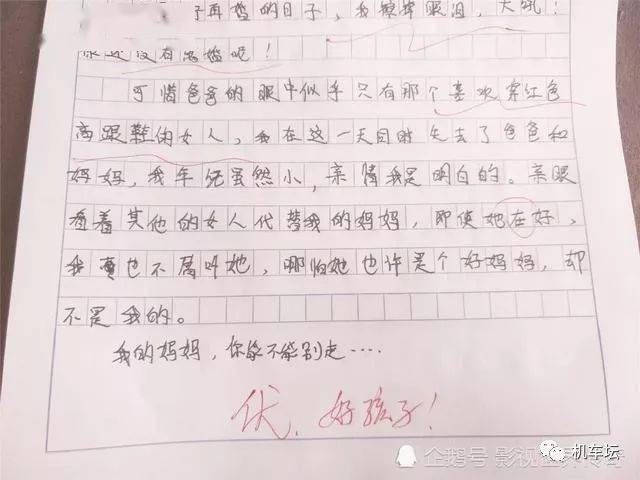 了再婚的日子，我擦掉眼泪，大吼！
你还没有离婚呢！
可惜爸爸的眼中似乎只有那个喜欢穿红色
高跟鞋的女人，我在这一天同时失去了爸爸和
妈妈，我年纪虽然小，亲情我是明白的。亲眼
看着其他的女人代替我的妈妈，即使她在好，
我也不愿叫她，哪怕她也许是个好妈妈，却
不是我的。
我的妈妈，你能不能别走····
优，好孩子！
企鹅号 影视
机车坛